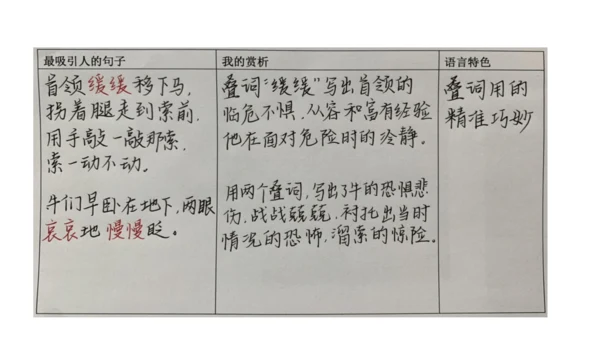 最吸引人的句子
我的赏析
语言特色
首领缓缓移下马，
拐着腿走到索前，
用手敲一敲那索，
索一动不动。
牛们早卧在地下，两眼
哀哀地慢慢眨。
叠词“缓缓”写出首领的
临危不惧，从容和富有经验
他在面对危险时的冷静。
用两个叠词，写出了牛的恐惧悲
伤，战战兢兢，衬托出当时
情况的恐怖，溜索的惊险。
叠词用的
精准巧妙